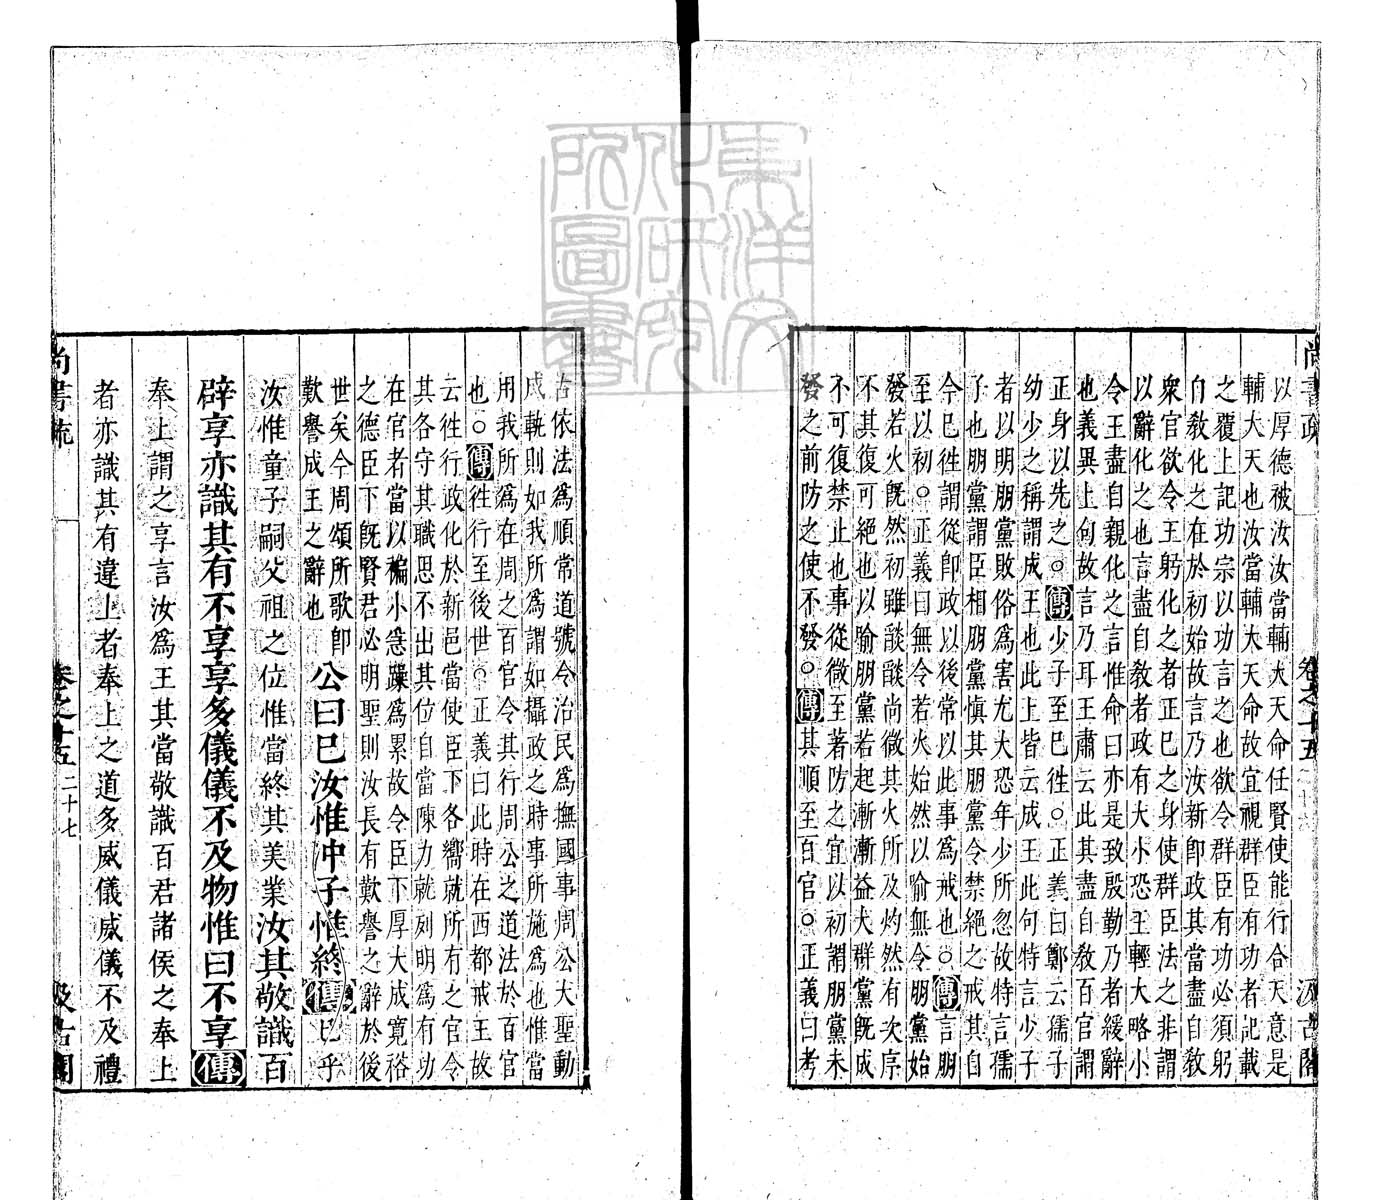 尚書疏
卷之十五
汲古閣
以厚德被汝汝當輔大天命任賢使能行合天意是
輔大天也汝當輔大天命故宜視群臣有功者記載
之覆上記功宗以功言之也欲令群臣有功必須躬
自敎化之在於初始故言乃汝新卽政其當盡自敎
衆官欲令王躬化之者正巳之身使群臣法之非謂
以辭化之也言盡自敎者政有大小恐王輕大略小
令王盡自親化之言惟命曰亦是致殷勤乃者緩辭
也義異上句故言乃耳王肅云此其盡自敎百官謂
正身以先之○傳少子至巳徃○正義曰鄭云孺子
幼少之稱謂成王也此上皆云成王此句特言少子
者以明朋黨敗俗爲害尤大恐年少所忽故特言孺
子也朋黨謂臣相朋黨愼其朋黨令禁絕之戒其自
今巳徃謂從卽政以後常以此事爲戒也○傳言朋
至以初○正義曰無令若火始然以喻無令朋黨始
發若火旣然初雖燄燄尚微其火所及灼然有次序
不其復可絕也以喻朋黨若起漸漸益大群黨旣成
不可復禁止也事從微至著防之宜以初謂朋黨未
發之前防之使不發○傳其順至百官○正義曰考
古依法爲順常道號令治民爲撫國事周公大聖動
成軌則如我所爲謂如攝政之時事所施爲也惟當
用我所爲在周之百官令其行周公之道法於百官
也○傳徃行至後世○正義曰此時在西都戒王故
云徃行政化於新邑當使臣下各嚮就所有之官令
其各守其職思不出其位自當陳力就列明爲有功
在官者當以褊小急躁爲累故令臣下厚大成寬裕
之德臣下旣賢君必明聖則汝長有歎譽之辭於後
世矣今周頌所歌卽
歎譽成王之辭也
公曰巳汝惟沖子惟終傳巳乎
汝惟童子嗣父祖之位惟當終其美業汝其敬識百
辟享亦識其有不享享多儀儀不及物惟曰不享傳
奉上謂之享言汝爲王其當敬識百君諸侯之奉上
者亦識其有違上者奉上之道多威儀威儀不及禮
尚書疏
卷之十五
二十七
汲古閣
東洋文
化研究
所圖書